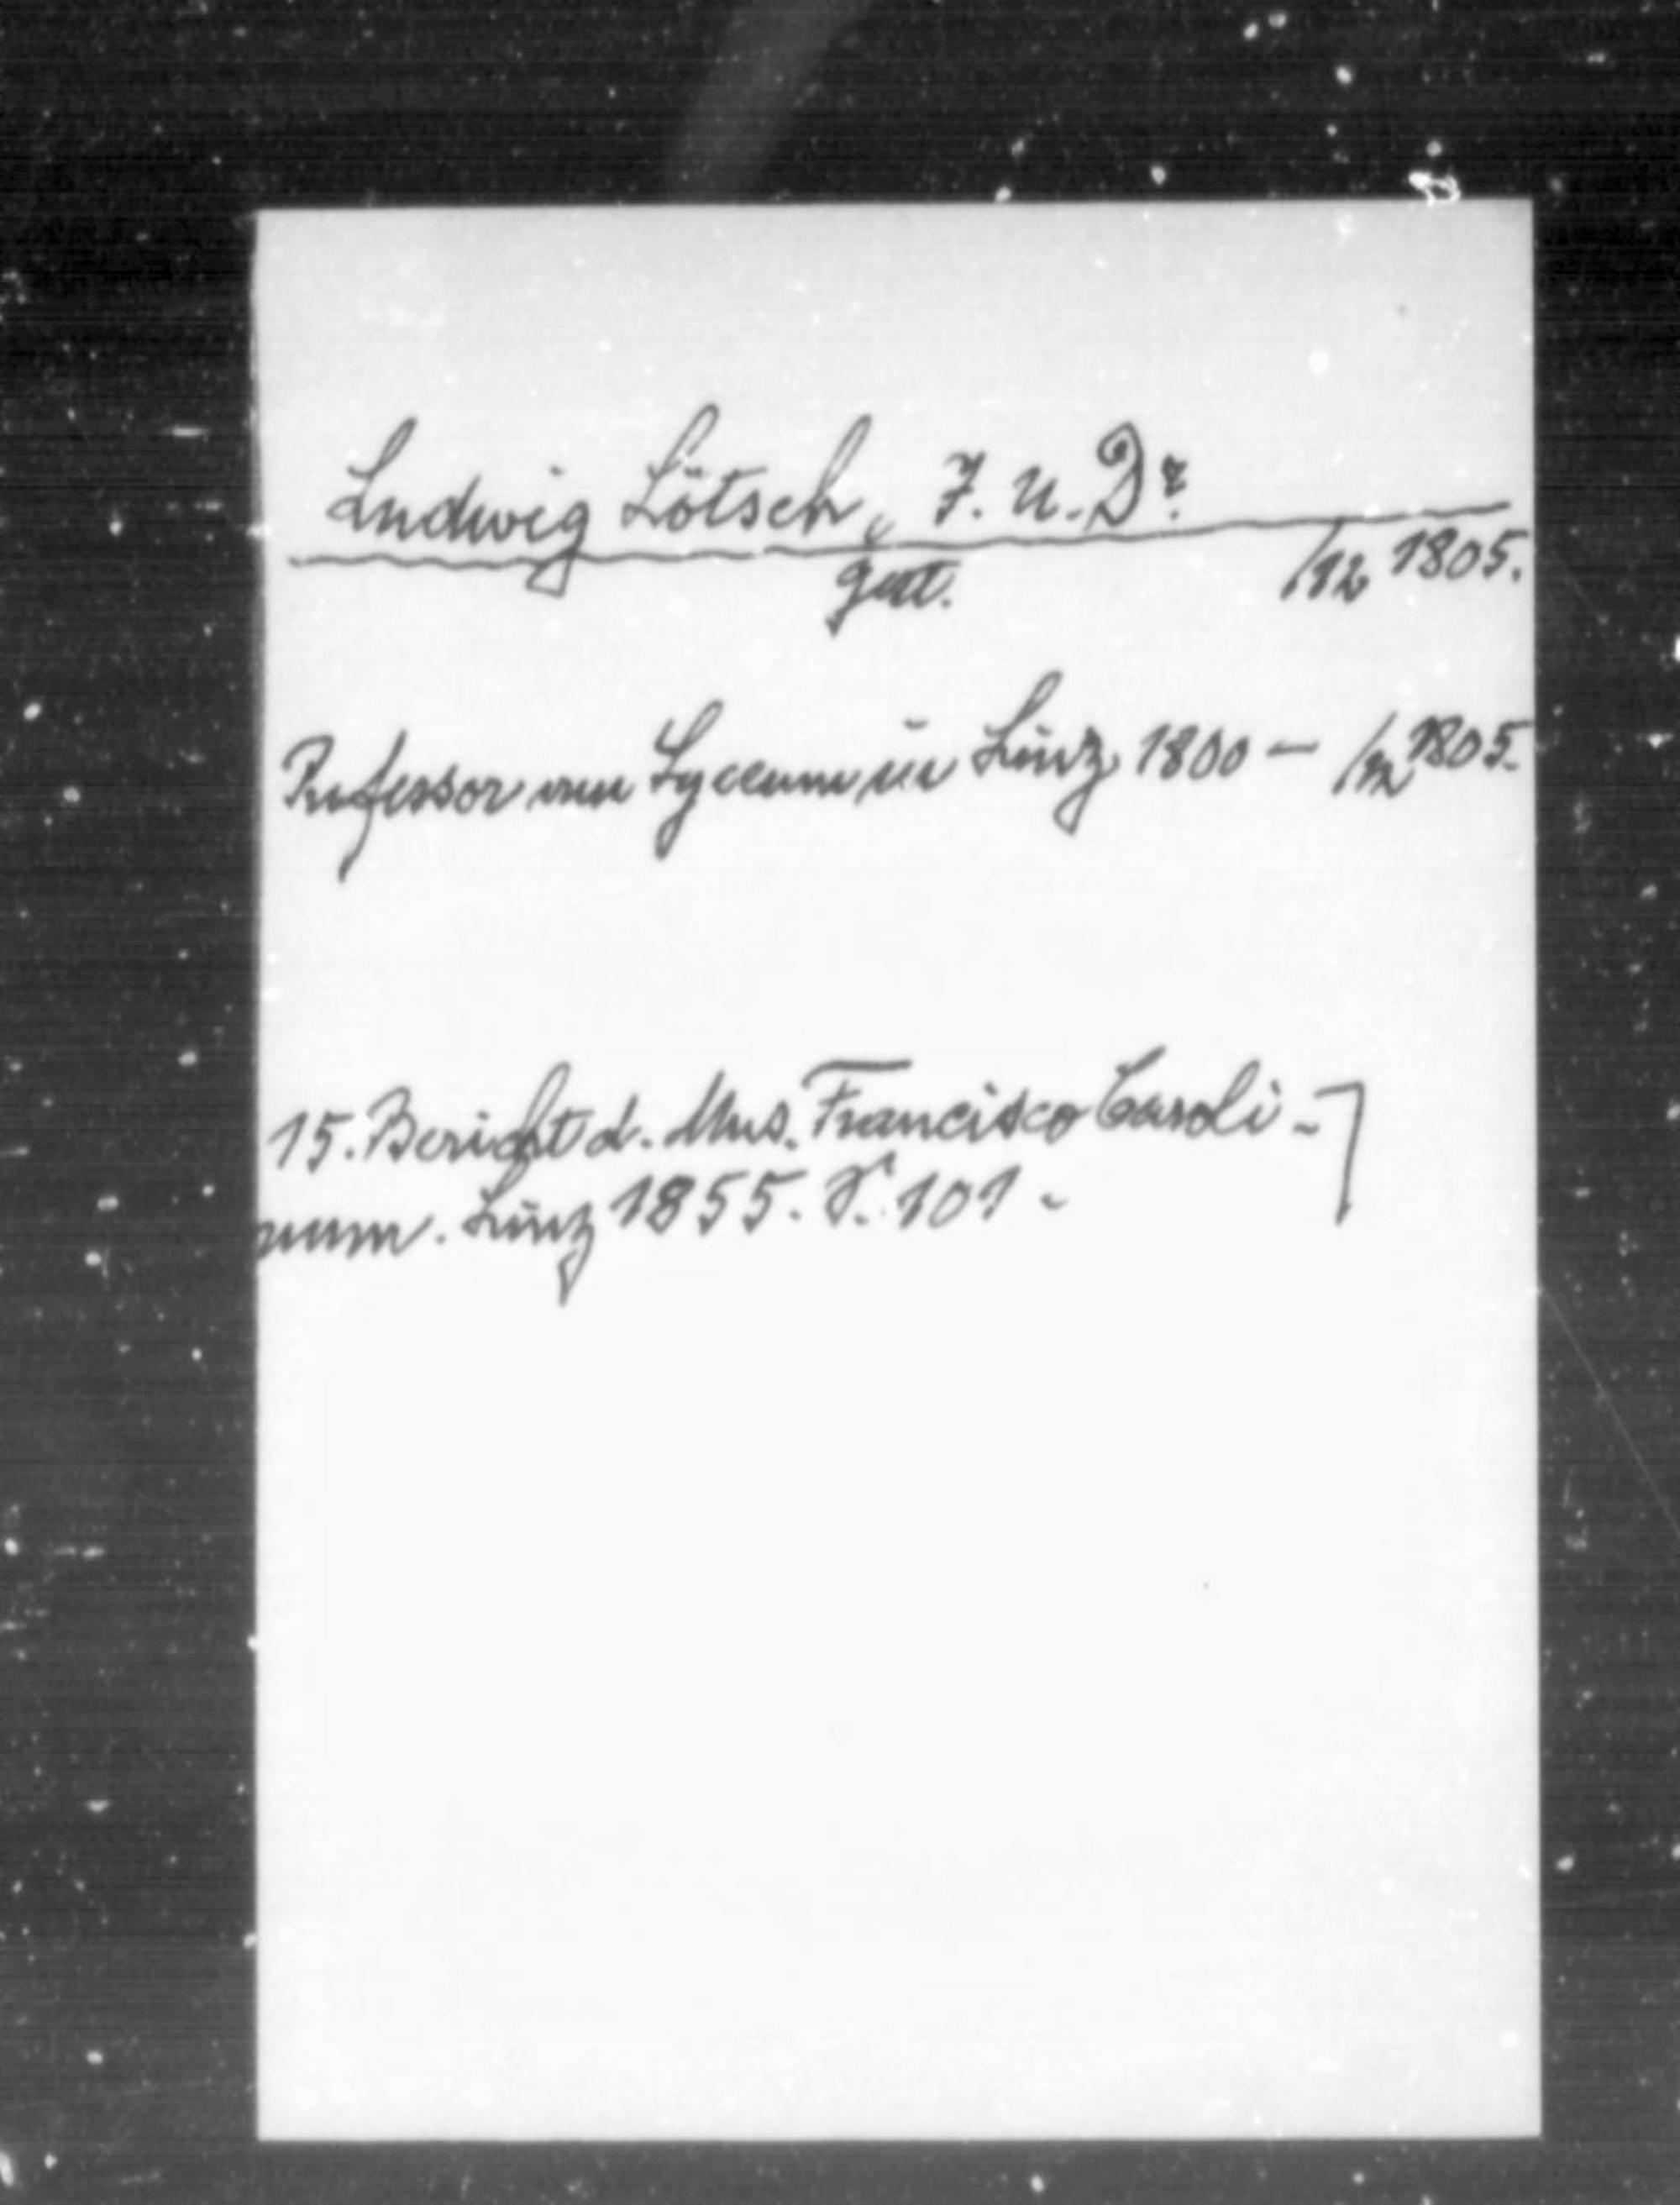 Ludwig Lötsch, J. U. Dr.
gest. /12 1805.
Professor am Lyceum in Linz 1800 – /12 1805.
15. Bericht d. Mus. Francisco Caroli-
num. Linz 1855. S. 101.